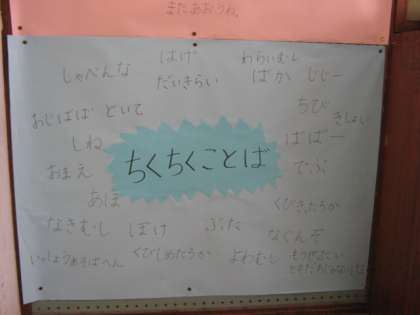 またあおうね。
はげ
わらいむし
しゃべんな
だいきらい
ばか
じじー
おじばば
どいて
ちび
きしょい
しね
ちくちくことば
ばばー
おまえ
でぶ
あほ
くびきったろか
なきむし
ぼけ
ぶた
なぐんぞ
いっしょうあそばへん
くびしめたろか
よわむし